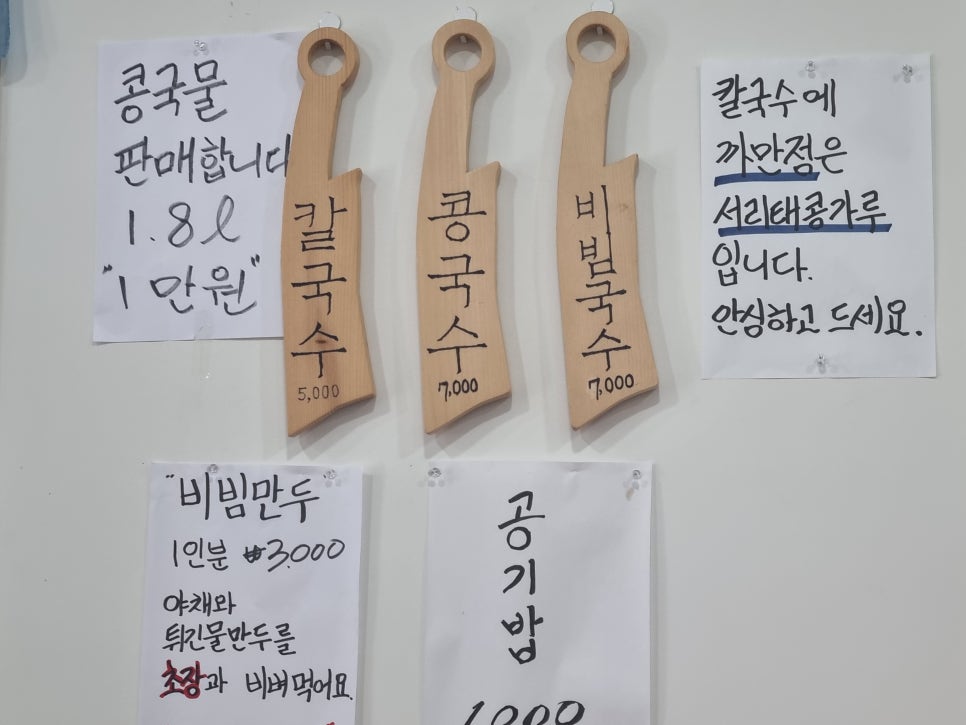 콩국물
판매합니다
1.8ℓ
"1만원"
칼국수
5,000
콩국수
7,000
비빔국수
7,000
칼국수에
까만점은
서리태콩가루
입니다.
안심하고 드세요.
"비빔만두"
1인분 ₩3.000
야채와
튀긴물만두를
초장과 비벼먹어요.
공기밥
1000